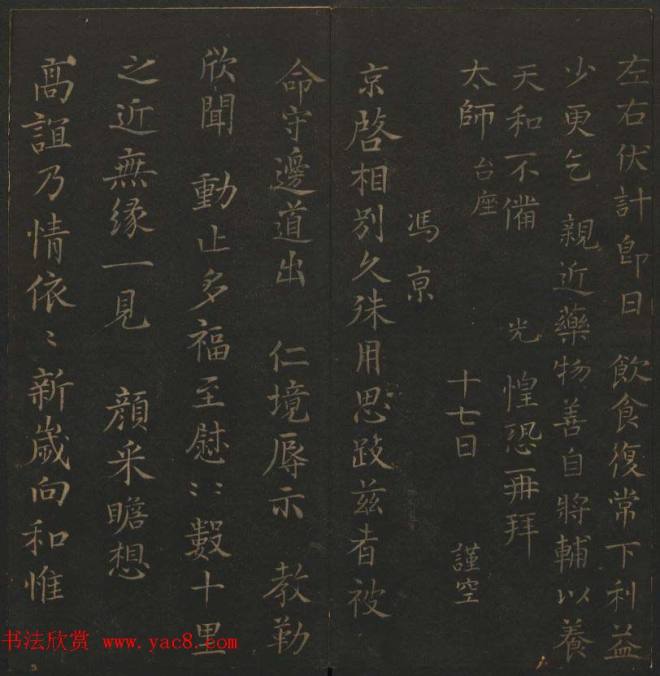 左右伏計即日 飲食復常下利益
少更乞 親近藥物善自將輔以養
天和不備 光惶恐再拜
太師台座 十七日 謹空
馮京
京啓相別久殊用思跂茲者被
命守邊道出 仁境辱示 教勤
欣聞 動止多福至慰〻數十里
之近無緣一見 顔采瞻想
高誼乃情依〻新歲向和惟
书法欣赏 www.yac8.com